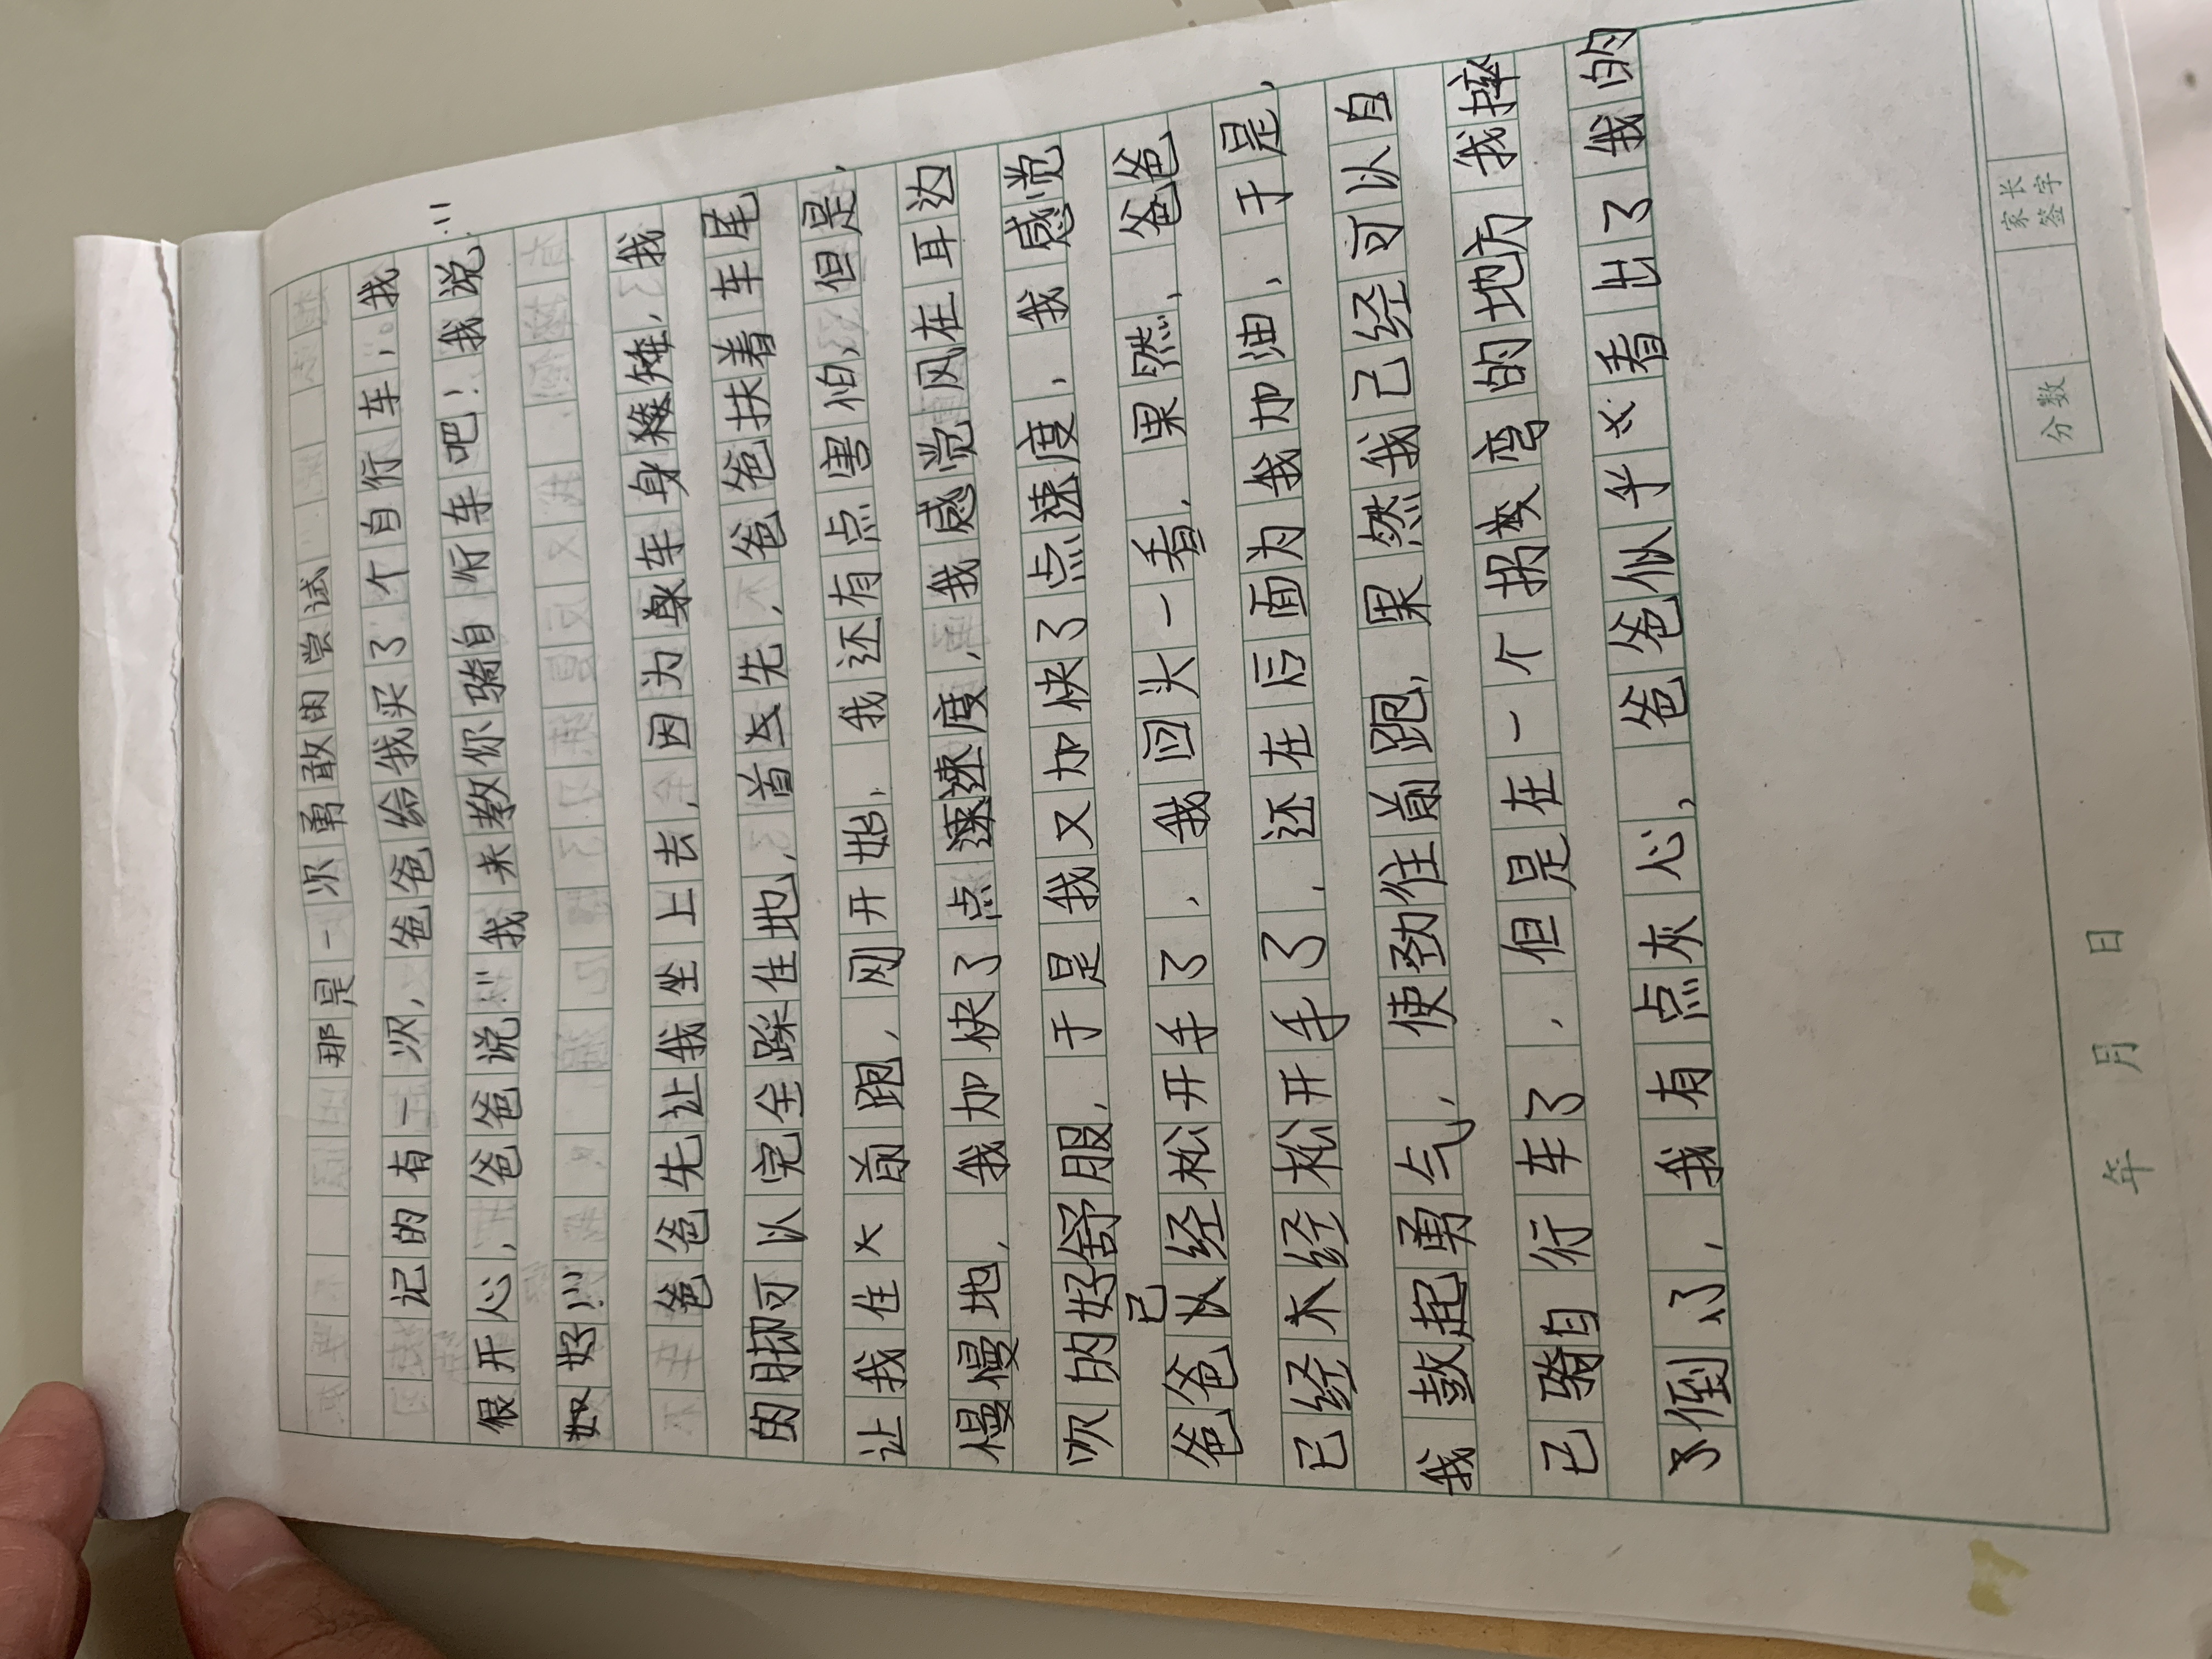 那是一次勇敢的尝试
记的有一次,爸爸给我买了个自行车,我
很开心,爸爸说:"我来教你骑自行车吧!我说:"
好!"
爸爸先让我坐上去,因为车身矮,我
的脚可以完全踩住地,首先,爸爸扶着车尾
让我住前跑,刚开始,我还有点害怕,但是,
慢慢地,我加快了点速度,我感觉风在耳边
吹的好舒服,于是我又加快了点速度,我感觉
爸爸已经松开手了,我回头一看,果然,爸爸
已经松开手了,还在后面为我加油,于是,
我鼓起勇气,使劲住前跑,果然我已经可以自
已骑自行车了,但是在一个拐弯的地方我摔
倒了,我有点灰心,爸爸似乎看出了我的
分数
家长签字
年 月 日